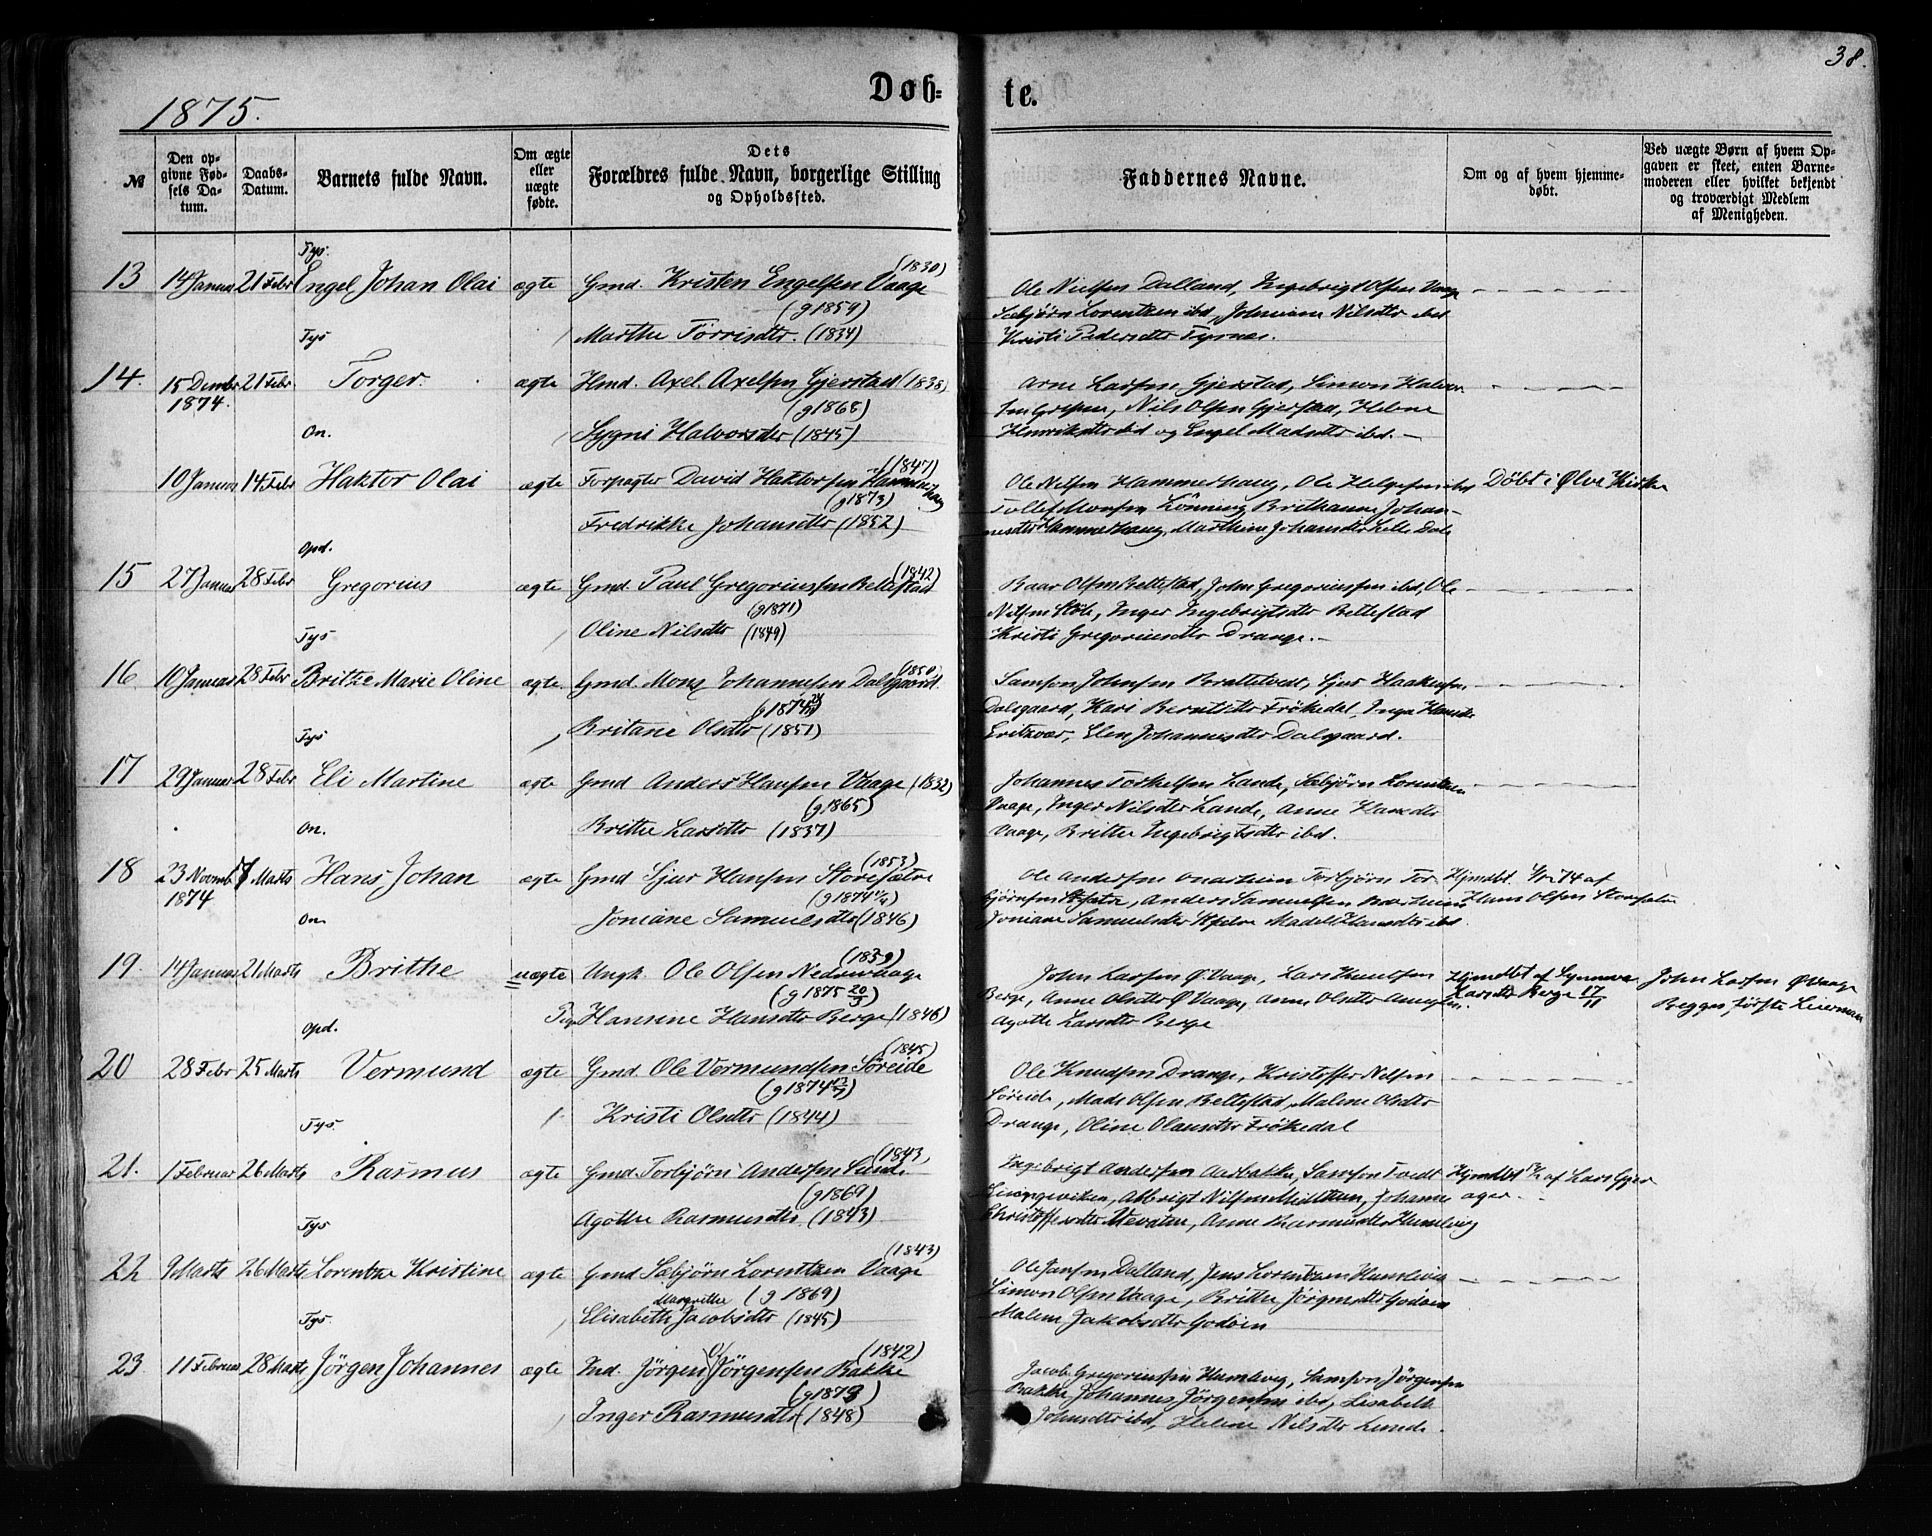 38.
1875.
Døb-
te.
№
Den op-
givne Fød-
sels Da-
tum.
Daabs-
Datum.
Barnets fulde Navn.
Om ægte
eller
uægte
fødte.
Dets
Forældres fulde Navn, borgerlige Stilling
og Opholdssted.
Faddernes Navne.
Om og af hvem hjemme-
døbt.
Ved uægte Børn af hvem Op-
gaven er skeet, enten Barne-
moderen eller hvilket bekjendt
og troværdigt Medlem
af Menigheden.
Tys.
13 14 Januar 21 Febr Engel Johan Olai ægte Gmd. Kristen Engelsen Vaage (1830)
(g 1859)
Marthe Torrisdtr. (1834)
Ole Nielsen Dalland, Ingebrigt Olsen Vaage
Sæbjörn Lorentsen ibd, Johanne Nilsdtr ibd
Kristi Pedersdtr Tysnes.
Tys
14. 15 Decmbr 1874. 21 Febr Torger. ægte Hmd. Axel Axelsen Gjerstad (1838)
(g 1868)
Sygni Halvorsdtr (1845)
Arne Larsen Gjerstad, Simon Halvor-
sen, Nils Olsen Gjerstad, Helene
Henriksdtr ibd og Engel Madsdtr ibd.
On.
10 Januar 14 Febr Haktor Olai ægte Forpagter David Haktorsen Hammerhaug (1847)
(g 1873)
Fredrikke Johansdtr (1852)
Ole Nilsen Hammerhaug, Ole Helgesen ibd
Tollef Monsen Lönning, Brithanna Johan-
nesdtr Hammerhaug, Marthine Johansdtr Lille Dale
Döbt i Ølve Kirke
Opd.
15 27 Januar 28 Febr Gregorius ægte Gmd. Paul Gregoriussen Bettestad (1842)
(g 1871)
Oline Nilsdtr (1849)
Baar Olsen Bettestad, John Gregoriussen ibd, Ole
Nilsen Støle, Inger Ingebrigtsdtr Bettestad
Kristi Gregoriusdtr Drange.
Tys
16. 10 Januar 28 Febr Britze Marie Oline ægte. Gmd. Mons Johannesen Dalsgaard (1850)
(g 1874)
Britanie Olsdtr (1851)
Samson Johnsen Brattetvedt, Sjur Haakensen
Dalsgaard, Kari Berntsdtr Frökedal, Inga
Eritzvær, Elen Johannesdtr Dalsgaard.
Tys
17 29 Januar 28 Febr Eli Martine ægte Gmd Anders Hansen Vaage (1832)
(g 1865)
Brithe Larsdtr (1837)
Johannes Torkelsen Lande, Sæbjörn Lorentsen
Vaage, Inger Nilsdtr Lande, Anne Hansdtr
Vaage, Brithe Ingebrigtsdtr ibd.
On.
18 23 Novmb 1874 Marts Hans Johan ægte Gmd Sjur Hansen Storesætre (1853)
(g 1874)
Joniane Samuelsdtr (1846)
Ole Andersen Torbjörn Tor-
björnsen, Anders Samuelsen
Joniane Samuelsdtr, Madel Hansdtr ibd.
Hjmdbt. 74 af
Hans Olsen Storesætre
On.
19. 14 Januar 21 Marts Brithe uægte Ungk. Ole Olsen Nedrevaage (1859)
(g 1875 20/5)
Pige Hansine Hansdtr Berge (1846)
John Larsen Ø. Vaage, Lars Knutsen
Berge, Anne Olsdtr Ø Vaage, Anne Olsdtr
Agathe Larsdtr Berge
Hjmdbt af Synneva
Larsdtr Berge 17/11
John Larsen Ø Vaage
Begges første Leierman
Opd.
20 28 Febr 25 Marts Vermund ægte Gmd. Ole Vermundsen Söreide (1845)
(g 1874)
Kristi Olsdtr (1844)
Ole Knudsen Drange, Kristoffer Nilsen
Söreide, Mads Olsen Bettestad, Malene Olsdtr
Drange, Oline Olausdtr Frökedal
Tys.
21. 1 Februar 26 Marts Rasmus ægte Gmd. Torbjörn Andersen Lund (1843)
(g 1869)
Agathe Rasmusdtr. (1843)
Ingebrigt Andersen, Samson Tvedt
Albrigt Nilsen, Johanne
Christoffersdtr, Anne Rasmusdtr Humlevig
Hjmdbt af Lars Gjer-
ager.
Tys
22 9 Marts 26 Marts Lorentze Kristine ægte Gmd Sæbjörn Lorentsen Vaage (1843)
Margrithe (g 1869)
Elisabeth Jacobsdtr (1845)
Ole Jansen Dalland, Jens Lorentsen Humlevig
Simon Olsen Vaage, Brithe Jörgensdtr Godöen
Malene Jakobsdtr Godöen
Tys.
23 11 Februar 28 Marts Jörgen Johannes ægte Ind. Jörgen Jörgensen Bakke (1842)
(g 1873)
Inger Rasmusdtr (1848)
Jacob Gregoriussen Humlevig, Samson Jörgensen
Bakke, Johannes Jörgensen ibd, Lisabeth
Johnsdtr ibd, Helene Nilsdtr Lunde.